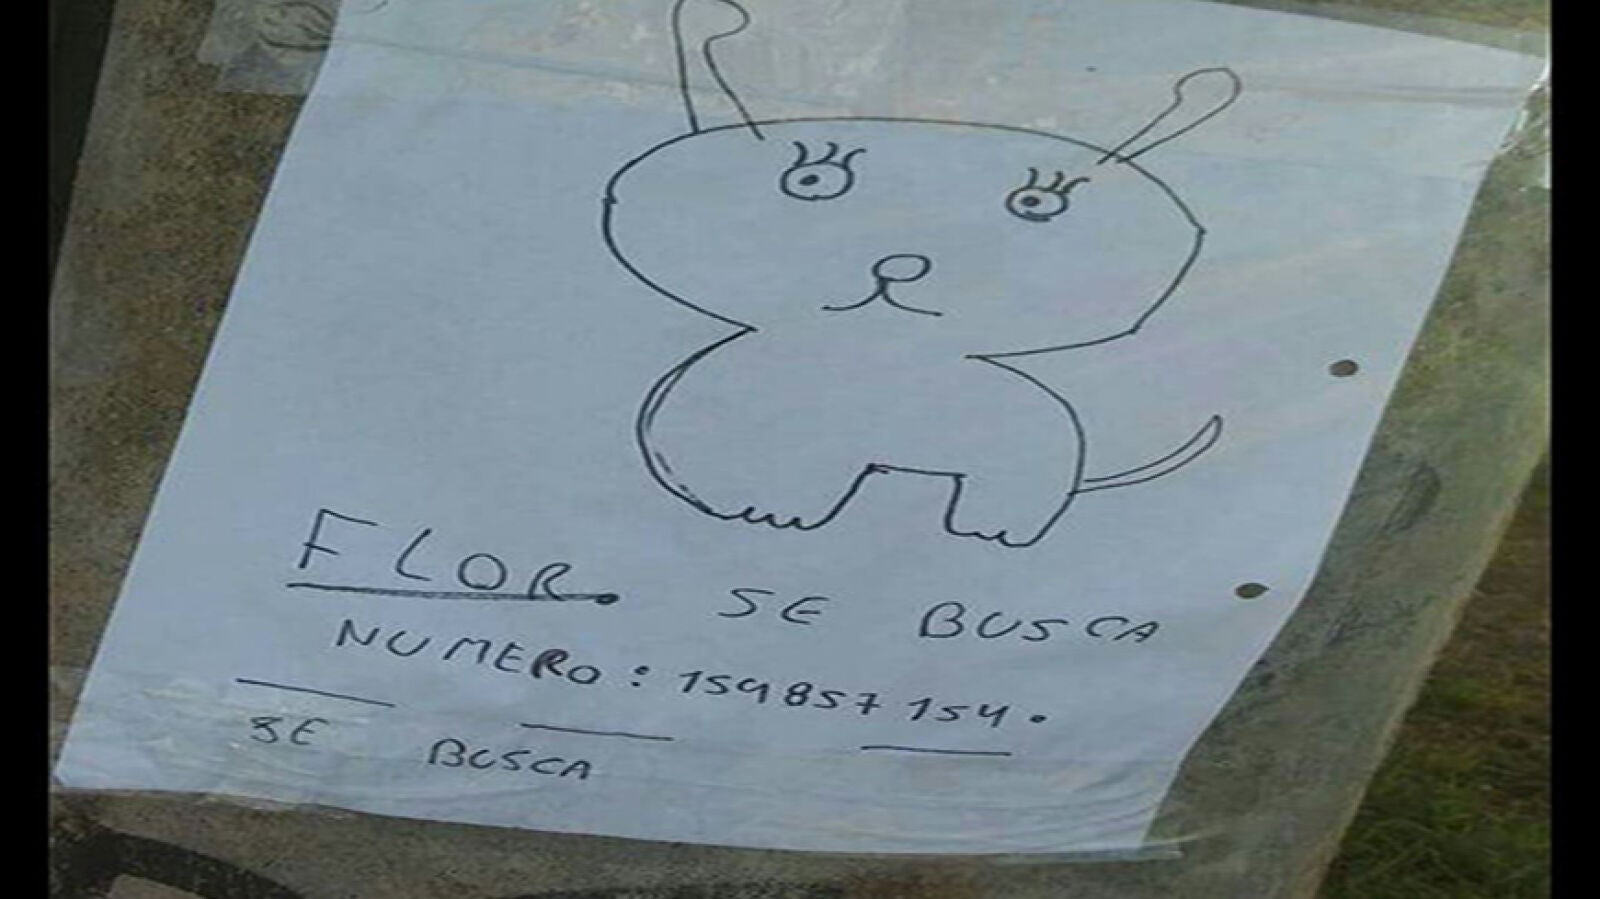 FLOR. SE BUSCA
NUMERO: 154857154.
SE BUSCA